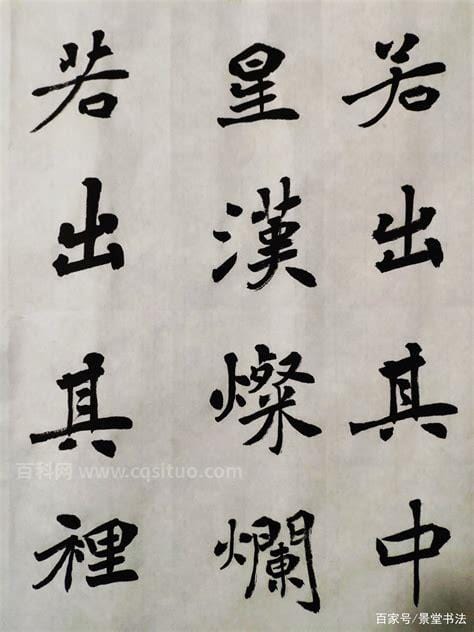 若出其中
星漢燦爛
若出其裡
百科网 www.cqsituo.com
百家号/景堂书法